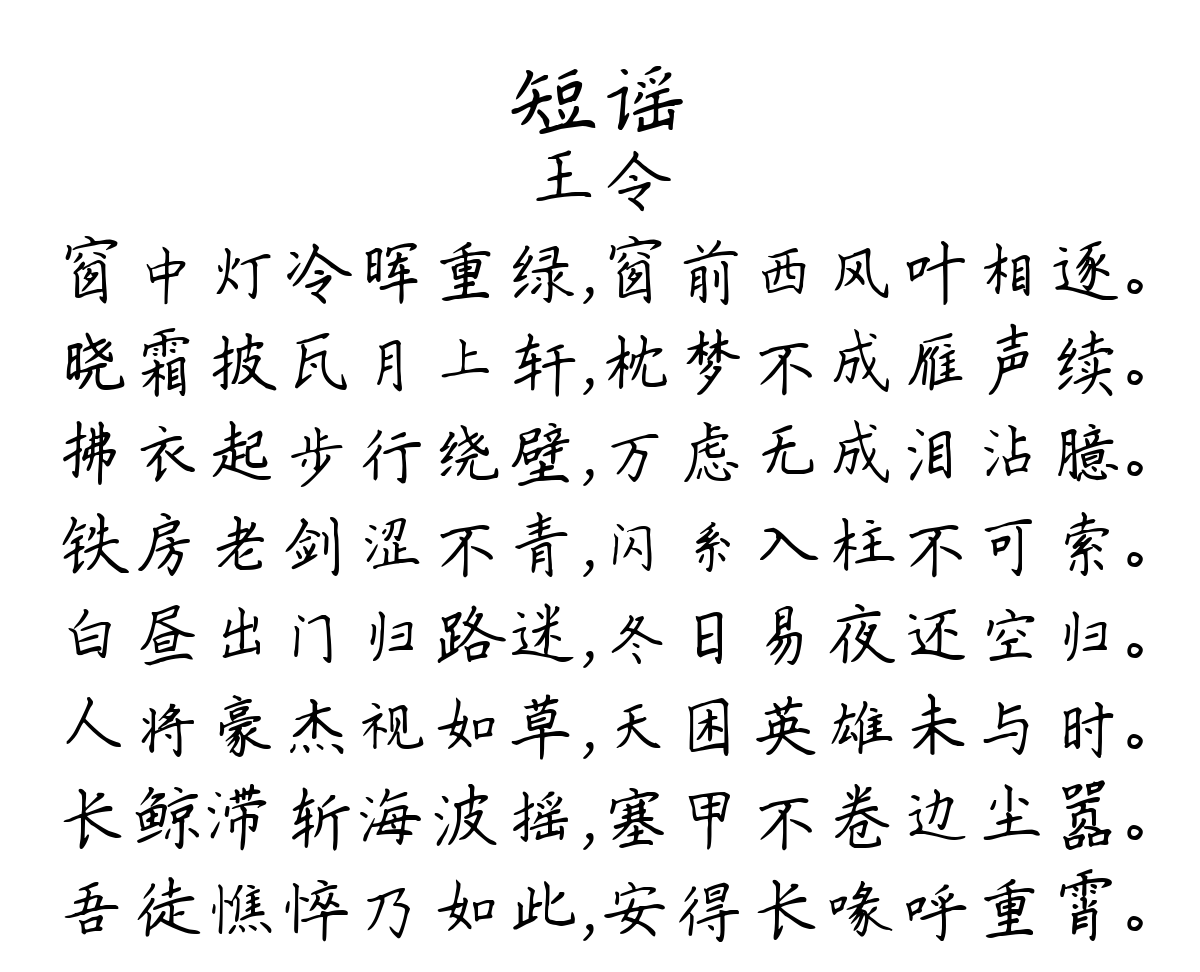 短谣
王令
窗中灯冷晖重绿,窗前西风叶相逐。
晓霜披瓦月上轩,枕梦不成雁声续。
拂衣起步行绕壁,万虑无成泪沾臆。
铁房老剑涩不青,闪系入柱不可索。
白昼出门归路迷,冬日易夜还空归。
人将豪杰视如草,天困英雄未与时。
长鲸滞斩海波摇,塞甲不卷边尘嚣。
吾徒憔悴乃如此,安得长喙呼重霄。